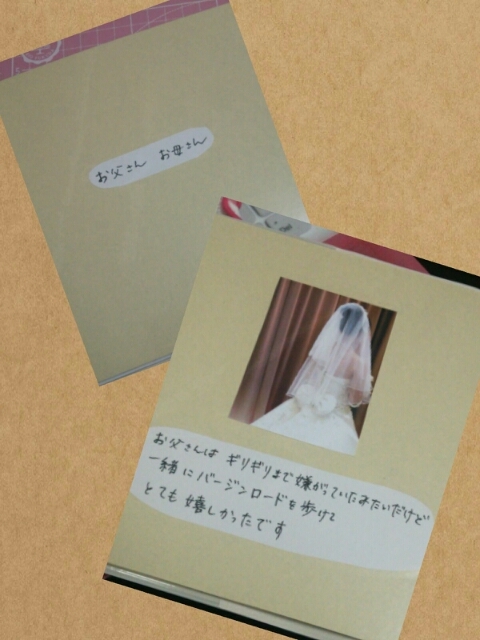 お父さん お母さん
お父さんは ギリギリまで嫌がっていたみたいだけど
一緒にバージンロードを歩けて
とても嬉しかったです